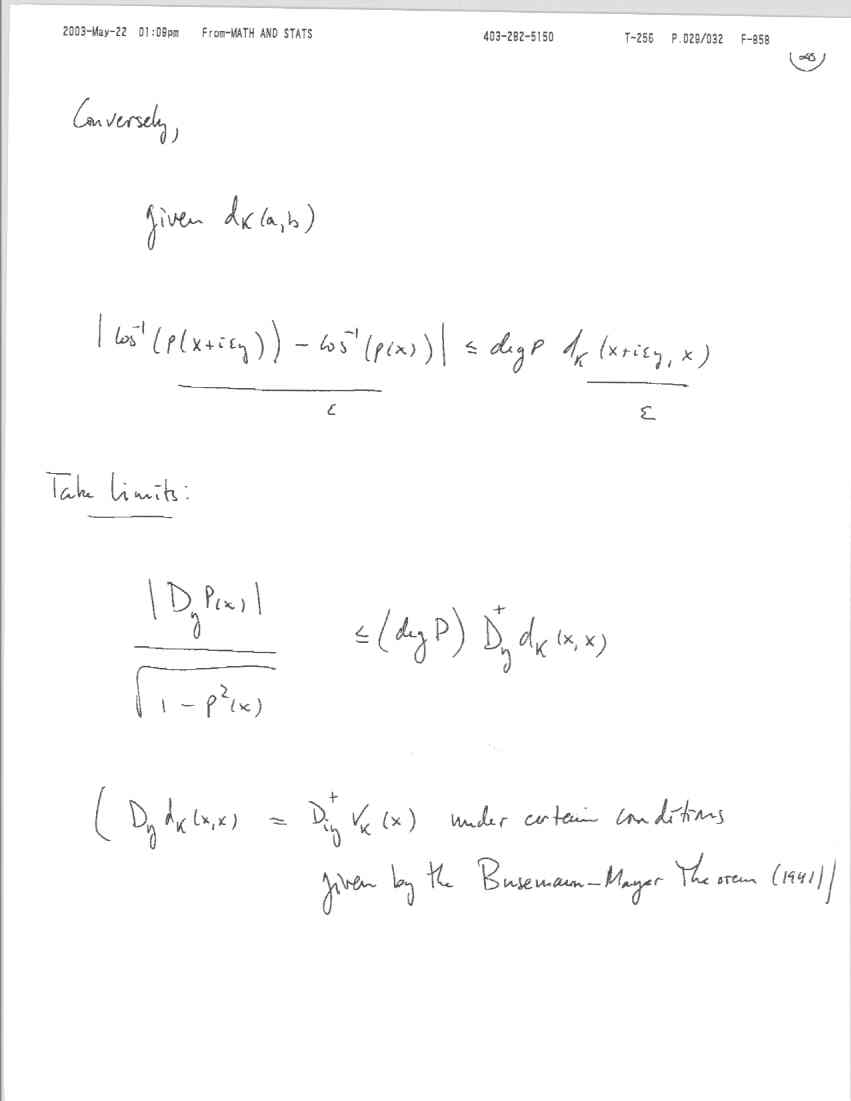 2003-May-22 01:09pm From-MATH AND STATS 403-282-5150 T-256 P.029/032 F-858
Conversely,
given d_K(a,b)
|cos^-1(p(x+iεy)) - cos^-1(p(x))| ≤ deg P d_K(x+iεy, x)
ε ε
Take limits:
|D_y P(x)|
≤ (deg P) D_y^+ d_K(x,x)
√1 - p^2(x)
( D_y d_K(x,x) = D_iy^+ V_K(x) under certain conditions
given by the Busemann-Mayer Theorem (1941))